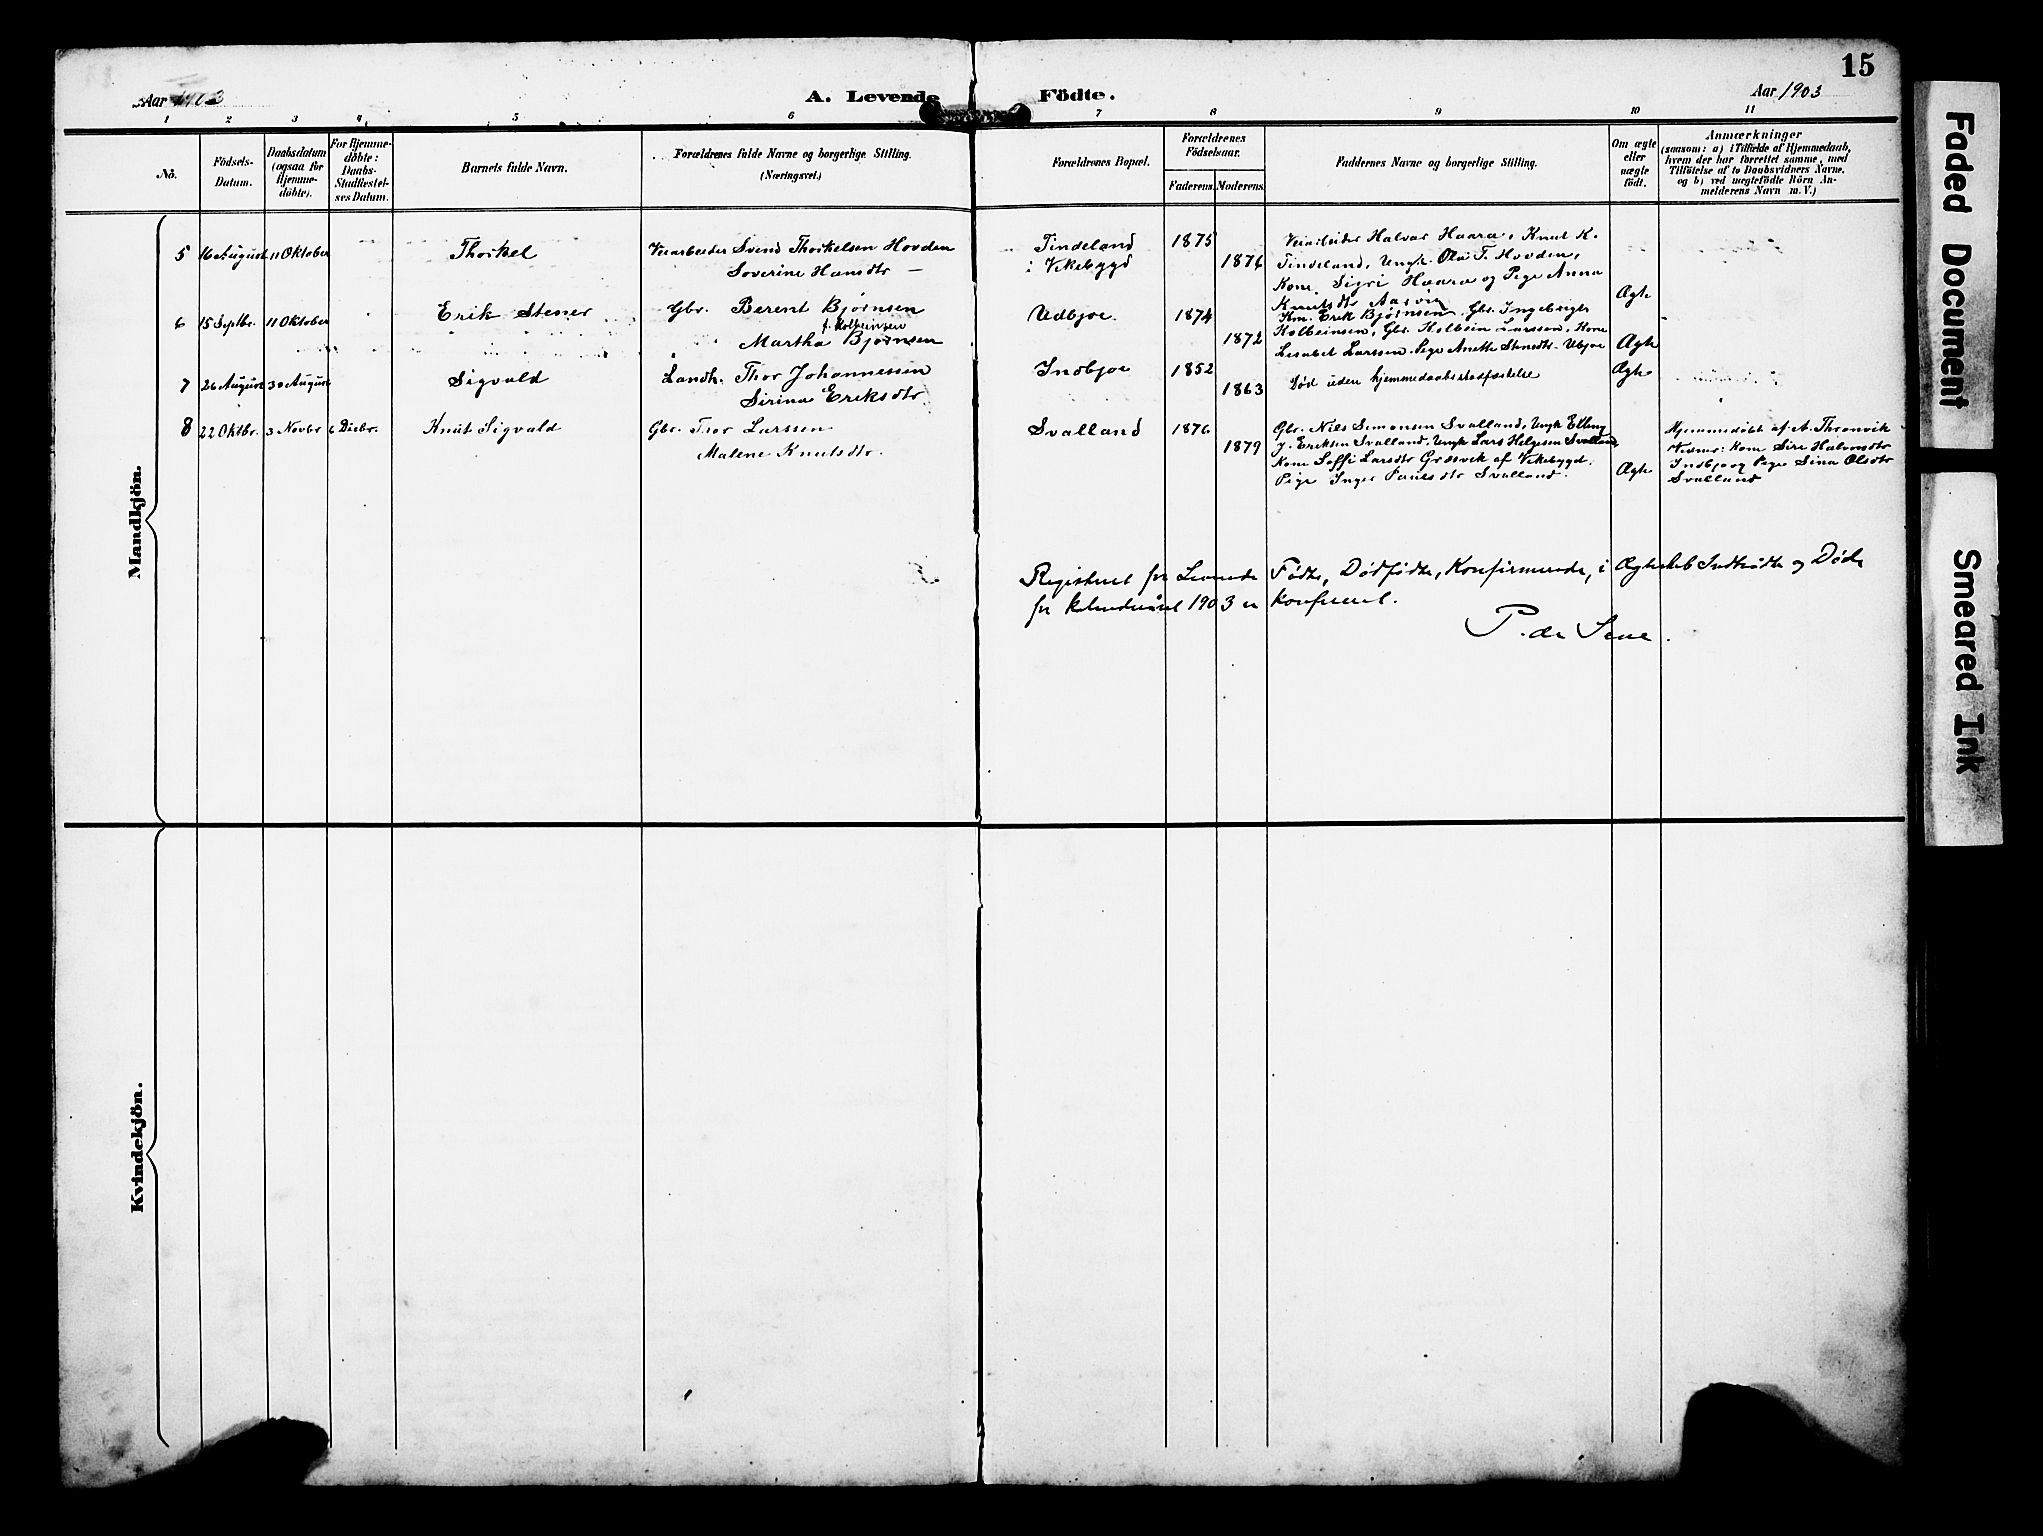 15
Aar 1903
A. Levende Födte.
Aar 1903
1 2 3 4 5 6 7 8 9 10 11
No.
Födsels-
Datum.
Daabsdatum
(ogsaa for
Hjemme-
döbte).
For Hjemme-
döbte:
Daabs-
Stadfæstel-
ses Datum.
Barnets fulde Navn.
Forældrenes fulde Navne og borgerlige Stilling.
(Næringsvei.)
Forældrenes Bopæl.
Forældrenes
Födselsaar.
Faderens. Moderens.
Faddernes Navne og borgerlige Stilling.
Om ægte
eller
uægte
födt.
Anmærkninger
(saasom: a) i Tilfælde af Hjemmedaab,
hvem der har forrettet samme, med
Tilföielse af to Daabsvidners Navne.
og b) ved uegtefödte Börn An-
melderens Navn m. V.)
Mandkjön.
5 16 August 11 Oktober Thorkel Veiarbeider Svend Thorkelsen Hovden
Soverine Hansdtr —
Tindeland
i Vikebygd
1875
1876
Veiarbeider Halvor Haara, Knut K.
Tindeland, Ungk. Ola T. Hovden,
Kone Sigri Haara og Pige Anna
Knutsdtr Aasvig
Ægte
6 15 Septbr. 11 Oktober Erik Stener Gbr. Berent Bjørnsen
f. Kolbeinsen
Martha Bjørnsen
Udbjoe.
1874
1872
Km. Erik Bjørnsen. Gbr. Ingebrigt
Kolbeinsen, Gbr. Kolbein Larssen, Kone
Lisabet Larssen. Pige Anette Stensdtr. Ubjoe
Ægte
7 26 August 30 August Sigvald Landh. Thor Johannessen
Sirina Eriksdtr
Indbjoe
1852
1863
Død uden hjemmedaabsstadfæstelse
Ægte
8 22 Oktbr. 3 Novbr 6 Decbr. Knut Sigvald Gbr. Thor Larssen
Malene Knutsdtr.
Svalland
1876
1879
Gbr. Nils Simonsen Svalland, Ungk Elling
J. Eriksen Svalland, Ungk Lars Helgesen Svalland
Kone Soffi Larsdtr Græsvik af Vikebygd.
Pige Inger Paulsdtr Svalland.
Ægte
Hjemmedøbt af A. Thronvik
Vidner: Kone Siri Halvorsdtr
Indbjo og Pige Sina Olsdtr
Svalland
Registeret for Levende Fødte, Dødfødte, Konfirmerede, i Ægteskab Indtrådte og Døde
for kalenderåret 1903 er konfereret.
P. de Seue.
Kvindekjön.
Faded Document
Smeared Ink